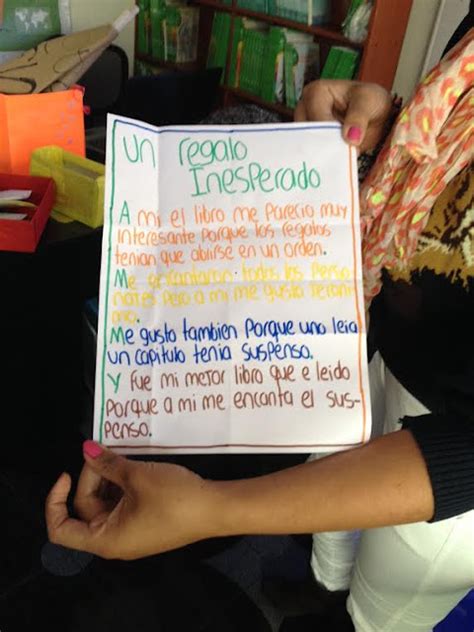 un regalo
Inesperado
A mi el libro me parecio muy
interesante porque los regalos
tenian que abrirse en un orden.
Me encantaron todos los perso
najes pero a mi me gusto Jeroni
mo.
Me gusto tambien porque uno leia
un capitulo tenia suspenso.
Y fue mi mejor libro que e leido
porque a mi me encanta el sus-
penso.